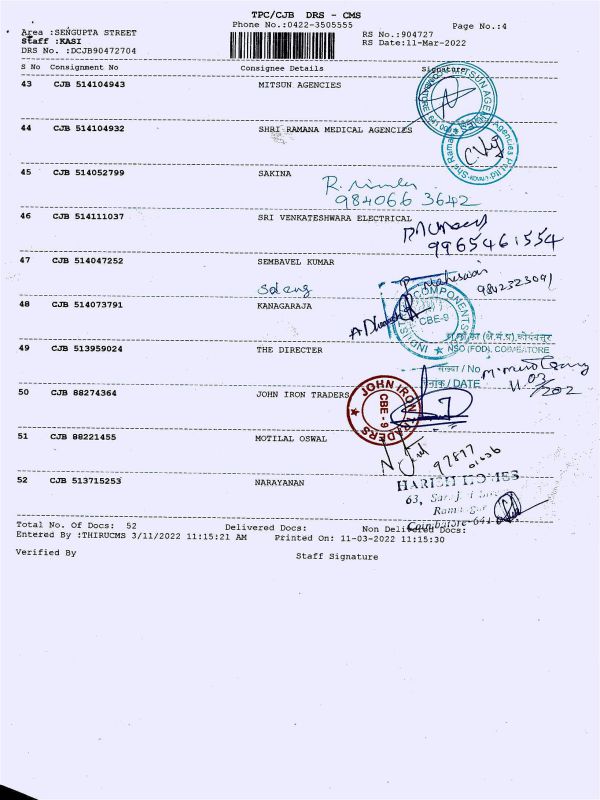 TPC/CJB DRS - CMS
Phone No.:0422-3505555
Page No.:4
Area :SENGUPTA STREET
Staff :KASI
DRS No. :DCJB90472704
RS No.:904727
RS Date:11-Mar-2022
S No Consignment No Consignee Details Signature
43 CJB 514104943 MITSUN AGENCIES
44 CJB 514104932 SHRI RAMANA MEDICAL AGENCIES
45 CJB 514052799 SAKINA
984066 3642
46 CJB 514111037 SRI VENKATESHWARA ELECTRICAL
9965461554
47 CJB 514047252 SEMBAVEL KUMAR
9842323091
48 CJB 514073791 KANAGARAJA
COMPONENTS
CBE-9
NSO (FOD), COIMBATORE
49 CJB 513959024 THE DIRECTER
संख्या / No
दिनांक / DATE
11/03/202
50 CJB 88274364 JOHN IRON TRADERS
JOHN IRON TRADERS
CBE - 9
51 CJB 88221455 MOTILAL OSWAL
52 CJB 513715253 NARAYANAN
HARISH HOMES
Total No. Of Docs: 52 Delivered Docs: Non Delivered Docs:
Entered By :THIRUCMS 3/11/2022 11:15:21 AM Printed On: 11-03-2022 11:15:30
Verified By Staff Signature